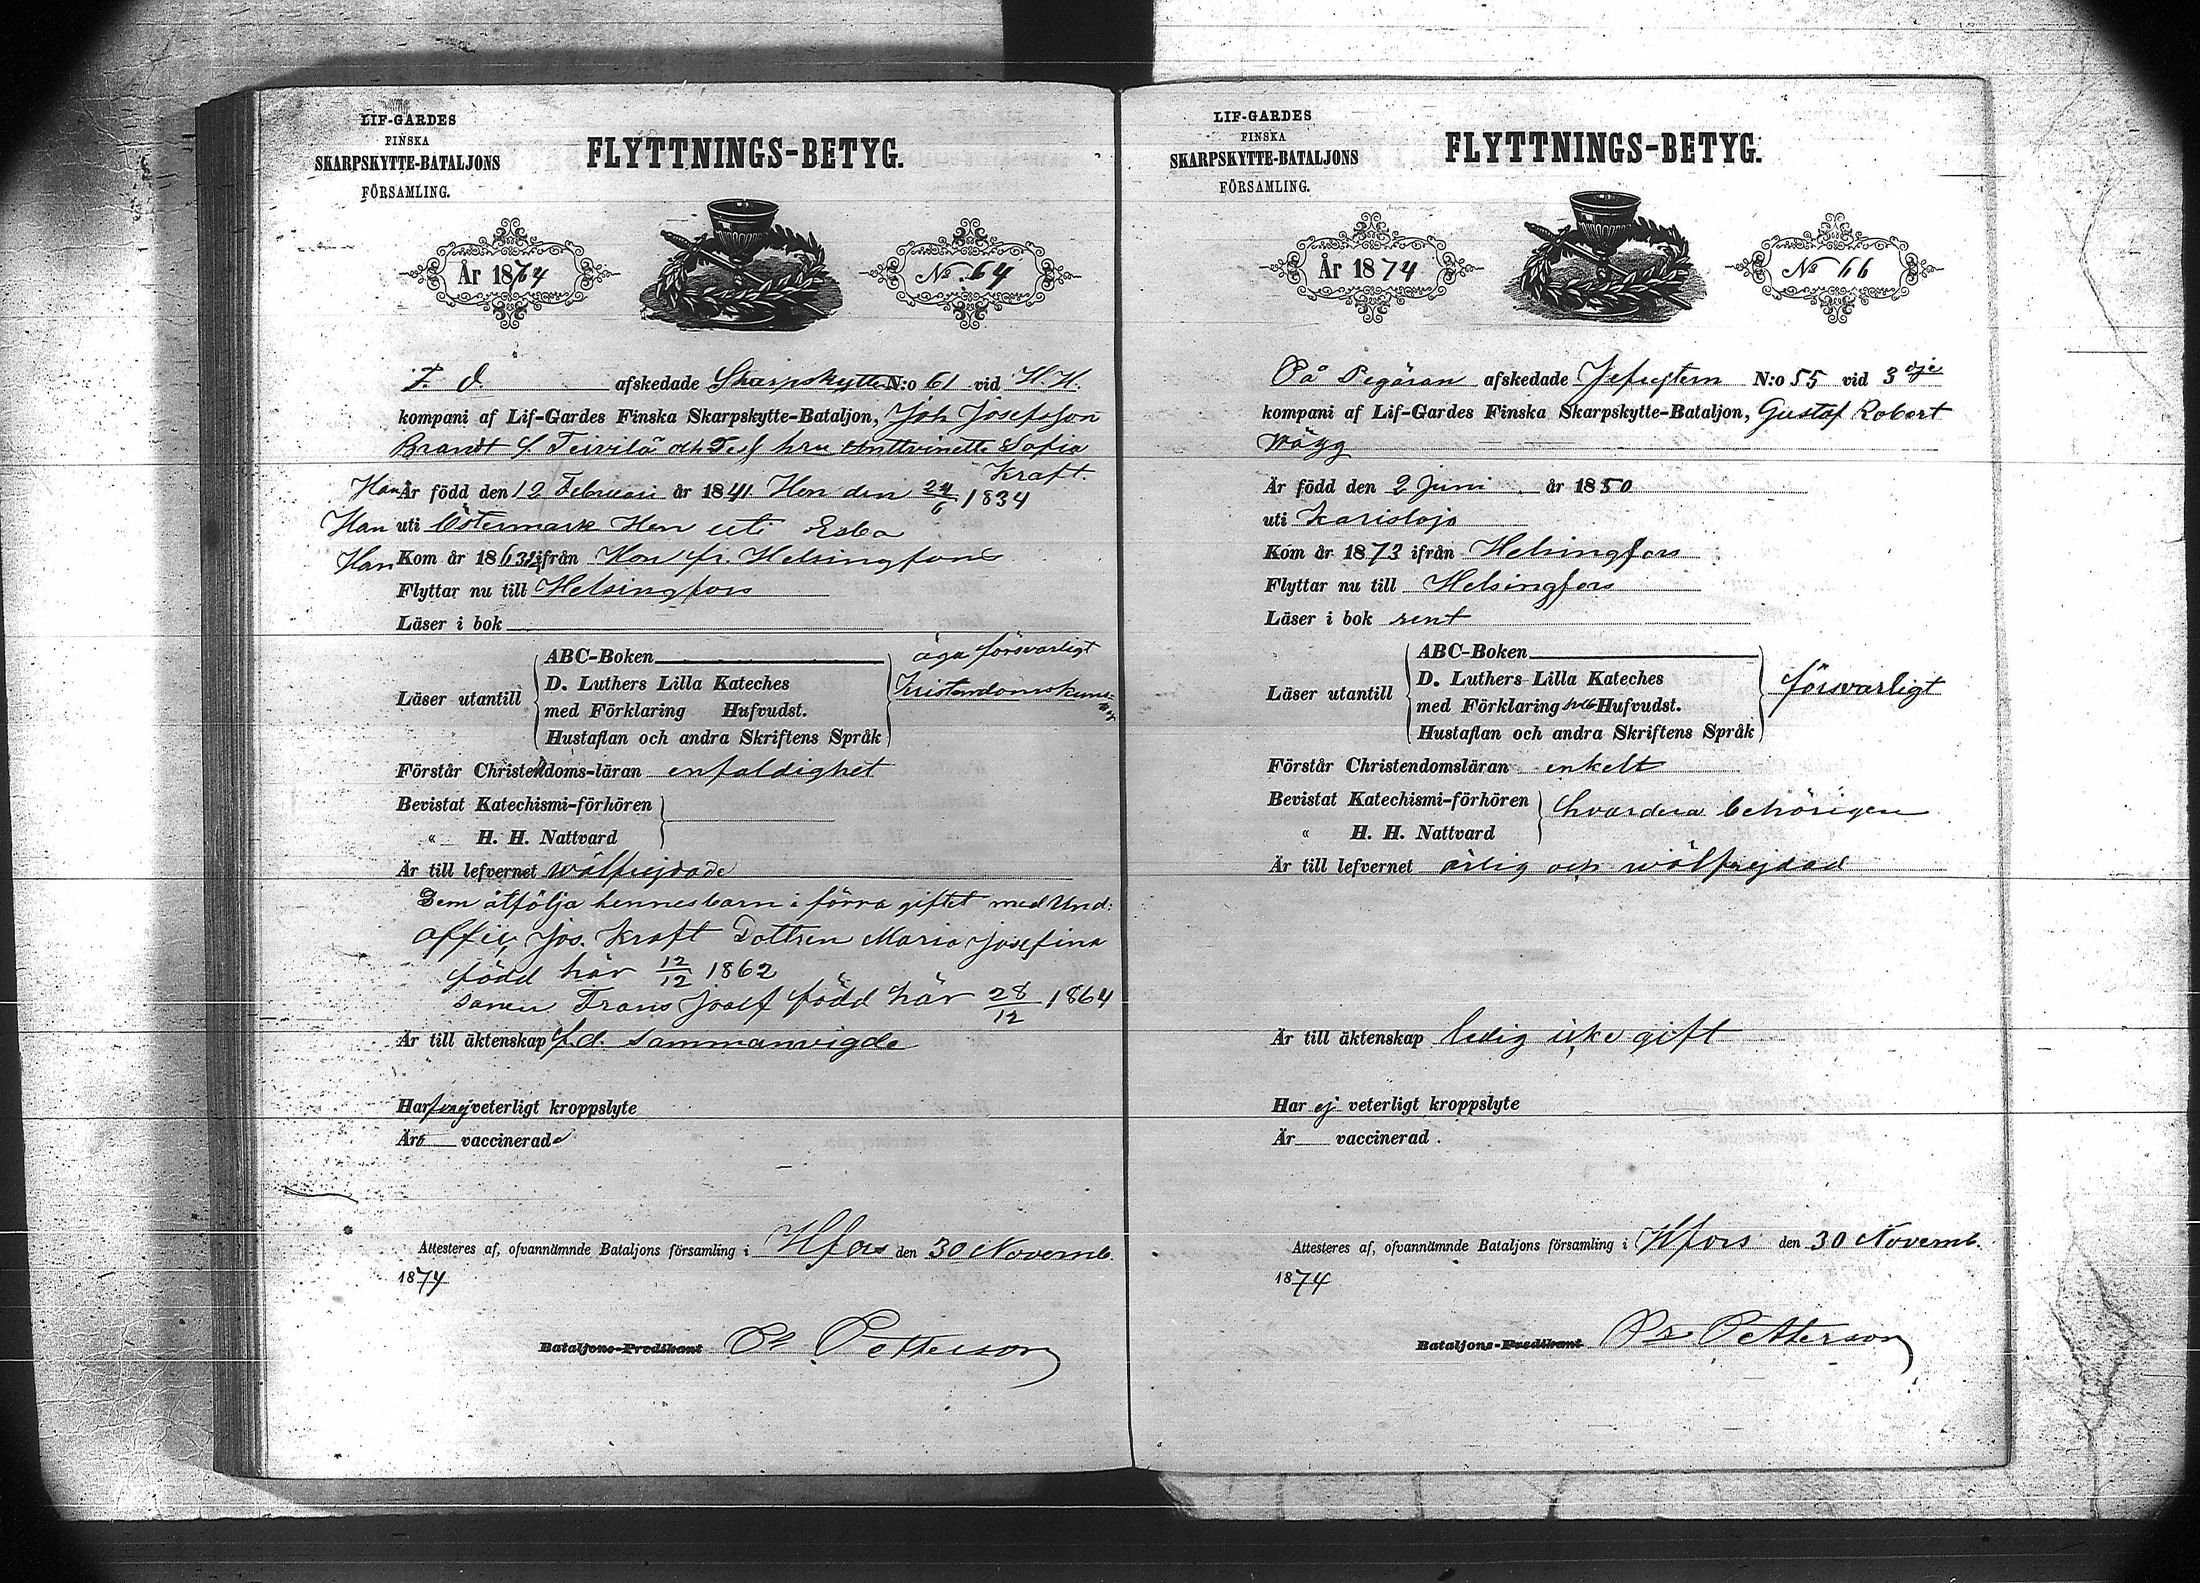 LIF-GARDES
FINSKA
SKARPSKYTTE-BATALJONS
FÖRSAMLING.
FLYTTNINGS-BETYG.
År 1874
No 64
F. d. afskedade Skarpskytte N:o 61 vid H. H.
kompani af Lif-Gardes Finska Skarpskytte-Bataljon, Joh Josefsson
Brandt f. Teirilä och Dess hru Anttvinette Sofia
Kraft.
Han Är född den 12 Februari år 1841 Hon den 24/6 1834
Han uti Östermark Hon uti Esbo
Han Kom år 1863 ifrån Hon fr. Helsingfors
Flyttar nu till Helsingfors
Läser i bok
Läser utantill
ABC-Boken
D. Luthers Lilla Kateches
med Förklaring Hufvudst.
Hustaflan och andra Skriftens Språk
äga försvarligt
Kristendomskuns-
Förstår Christendoms-läran enfaldighet
Bevistat Katechismi-förhören
« H. H. Nattvard
Är till lefvernet wälfrejdade
Dem åtfölja hennes barn i förra giftet med Und:
offic, Jos. Kraft Dottren Maria Josefina
född här 12/12 1862
sonen Frans Josef född här 28/12 1864
Är till äktenskap f.d. sammanvigde
Har veterligt kroppslyte
Äro vaccinerade
Attesteres af, ofvannämnde Bataljons församling i Hfors den 30 Novemb
1874
Bataljons-Predikant Petterson
LIF-GARDES
FINSKA
SKARPSKYTTE-BATALJONS
FÖRSAMLING.
FLYTTNINGS-BETYG.
År 1874
No 66
På Begäran afskedade Jefrejtern N:o 55 vid 3dje
kompani af Lif-Gardes Finska Skarpskytte-Bataljon, Gustaf Robert
Wägg
Är född den 2 Juni år 1850
uti Karislojo
Kom år 1873 ifrån Helsingfors
Flyttar nu till Helsingfors
Läser i bok rent
Läser utantill
ABC-Boken
D. Luthers Lilla Kateches
med Förklaring Hufvudst.
Hustaflan och andra Skriftens Språk
försvarligt
Förstår Christendomsläran enkelt
Bevistat Katechismi-förhören
« H. H. Nattvard
hvardera behörigen
Är till lefvernet ärlig och wälfrejdad
Är till äktenskap ledig icke gift
Har ej veterligt kroppslyte
Är vaccinerad.
Attesteres af, ofvannämnde Bataljons församling i Hfors den 30 Novemb.
1874
Bataljons-Predikant Petterson